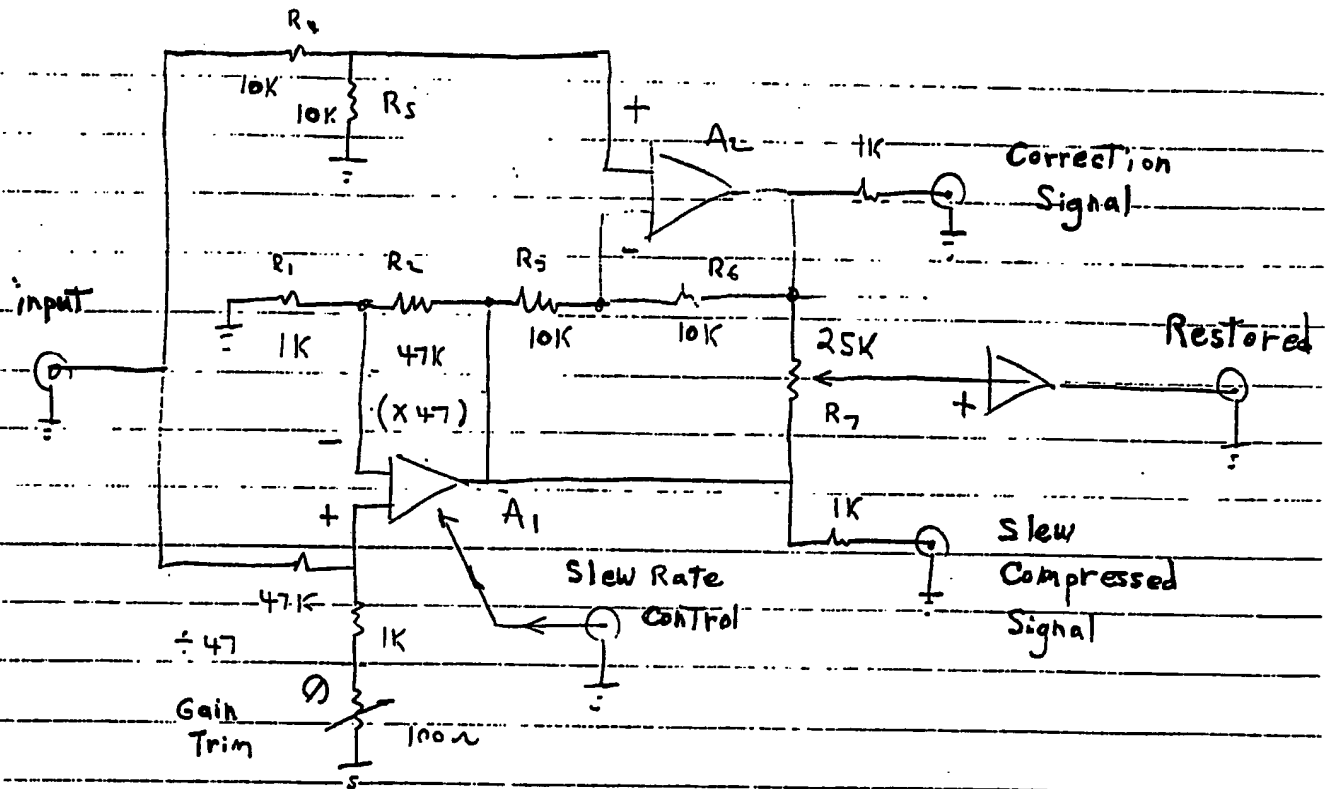 R4
10K
10K R5
+
A2
1K
Correction
Signal
-
input
R1
R2
R5
R6
1K
47K
10K
10K
25K
Restored
(X 47)
R7
+
-
+
A1
1K
Slew
Compressed
Signal
Slew Rate
Control
47K
÷ 47
1K
Gain
Trim
100Ω